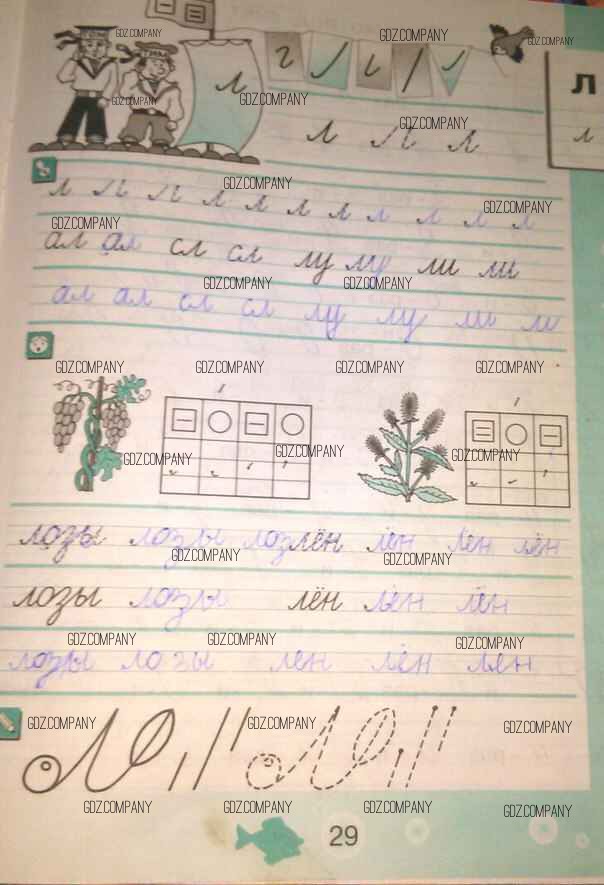 л
л л л
Л
л
л л л л л л л л л л л
ал ал сл сл лу лу ли ли
ал ал сл сл лу лу ли ли
лозы лозы лоз лён лён лён лён
лозы лозы лён лён лён
лозы лозы лен лён лен
29
GDZ.COMPANY